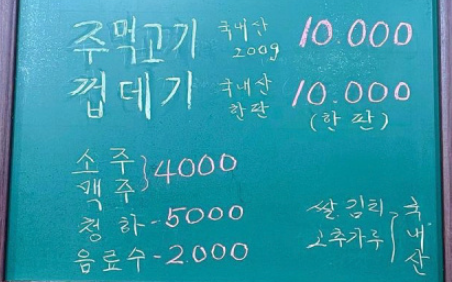 주먹고기 국내산 200g 10.000
껍데기 국내산 한판 10.000
(한판)
소주 } 4000
맥주
청하 - 5000
음료수 - 2.000
쌀. 김치 } 국내산
고추가루